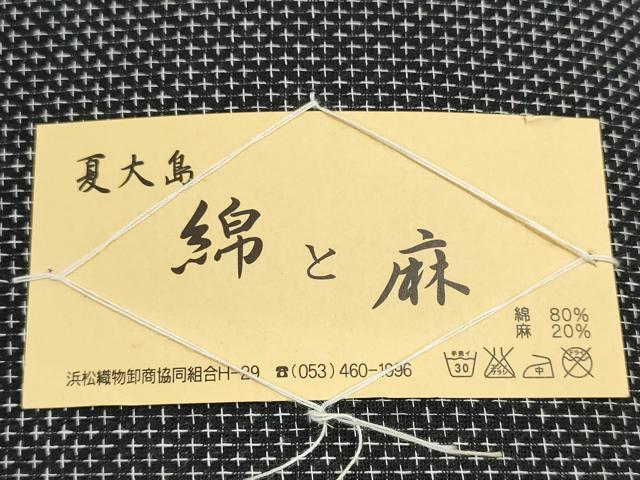 夏大島
綿と麻
綿 80%
麻 20%
浜松織物卸商協同組合H-29 ☎(053)460-1096
手洗イ 30 エンソサラシ 中 ドライ